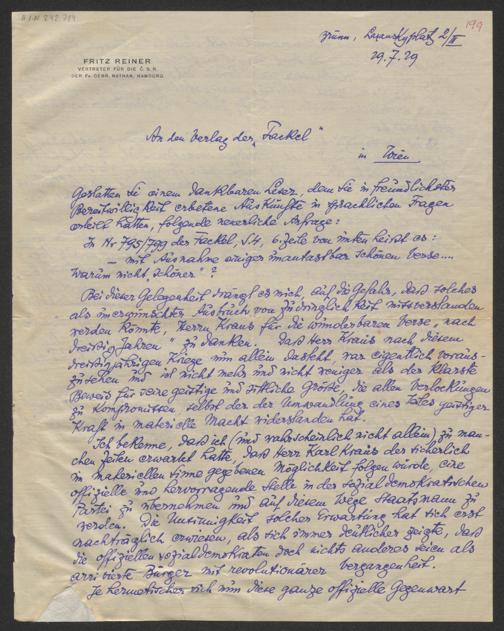 H.I.N. 242.714
199
Brünn, Lazanskyplatz 2/II
29.7.29
FRITZ REINER
VERTRETER FÜR DIE Č. S. R.
DER FA. GEBR. NATHAN, HAMBURG
An den Verlag der „Fackel“
in Wien.
Gestatten Sie einem dankbaren Leser, dem Sie in freundlichster
Bereitwilligkeit erbetene Auskünfte in sprachlichen Fragen
erteilt hatten, folgende neuerliche Anfrage:
In Nr 795/799 der Fackel, S 4, 6. Zeile von unten heißt es:
— mit Ausnahme einiger unantastbar schönen Verse....
Warum nicht „schöner“?
Bei dieser Gelegenheit drängt es mich, auf die Gefahr, daß solches
als unerwünschter Ausbruch von Zudringlichkeit mißverstanden
werden könnte, Herrn Kraus für die wunderbaren Verse „nach
dreißig Jahren“ zu danken. Daß Herr Kraus nach diesem
dreißigjährigen Kriege nun allein dasteht, war eigentlich voraus-
zusehen und ist nicht mehr und nicht weniger als der klarste
Beweis für seine geistige und sittliche Größe, die allen Verlockungen
zu Kompromissen, selbst der der Umwandlung eines Teiles geistiger
Kraft in materielle Macht widerstanden hat.
Ich bekenne, daß ich (und wahrscheinlich nicht allein) zu man-
chen Zeiten erwartet hatte, daß Herr Karl Kraus der sicherlich
im materiellen Sinne gegebenen Möglichkeit folgen würde, eine
offizielle und hervorragende Stelle in der sozialdemokratischen
Partei zu übernehmen und auf diesem Wege Staatsmann zu
werden. Die Unsinnigkeit solcher Erwartung hat sich erst
nachträglich erwiesen, als sich immer deutlicher zeigte, daß
die offiziellen Sozialdemokraten doch nichts anderes seien als
arrivierte Bürger mit revolutionärer Vergangenheit.
Je hermetischer sich nun diese ganze offizielle Gegenwart